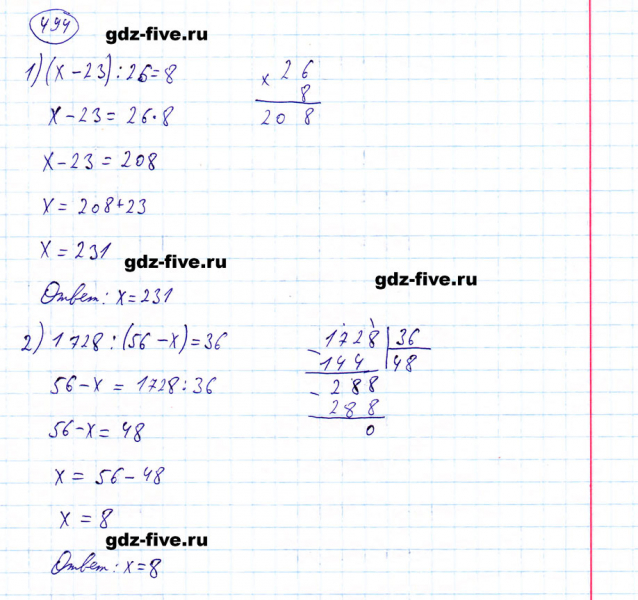 494
gdz-five.ru
1) (x-23):26=8
x-23=26·8
x-23=208
x=208+23
x=231
gdz-five.ru
Ответ: x=231
× 26
8
208
gdz-five.ru
2) 1728:(56-x)=36
56-x=1728:36
56-x=48
x=56-48
x=8
gdz-five.ru
Ответ: x=8
1728 | 36
- 144 | 48
- 288
288
0